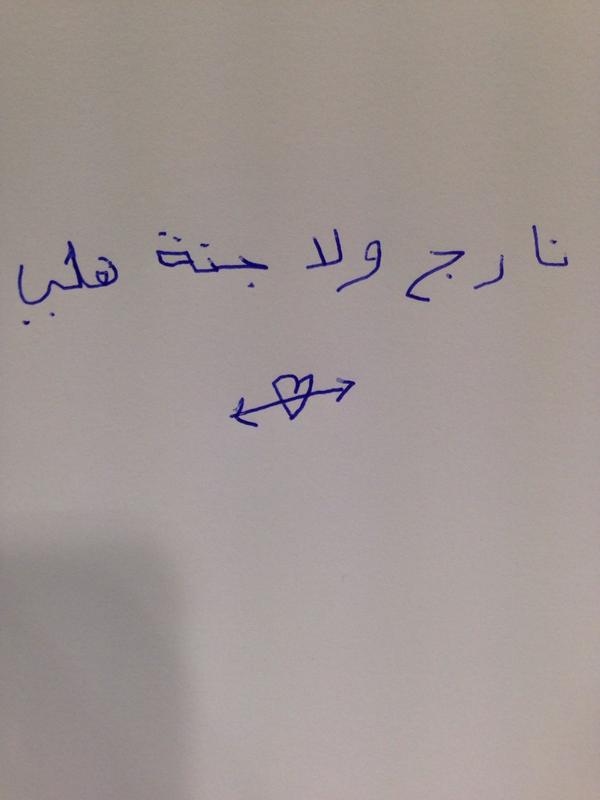 نارج ولا جنة هلي